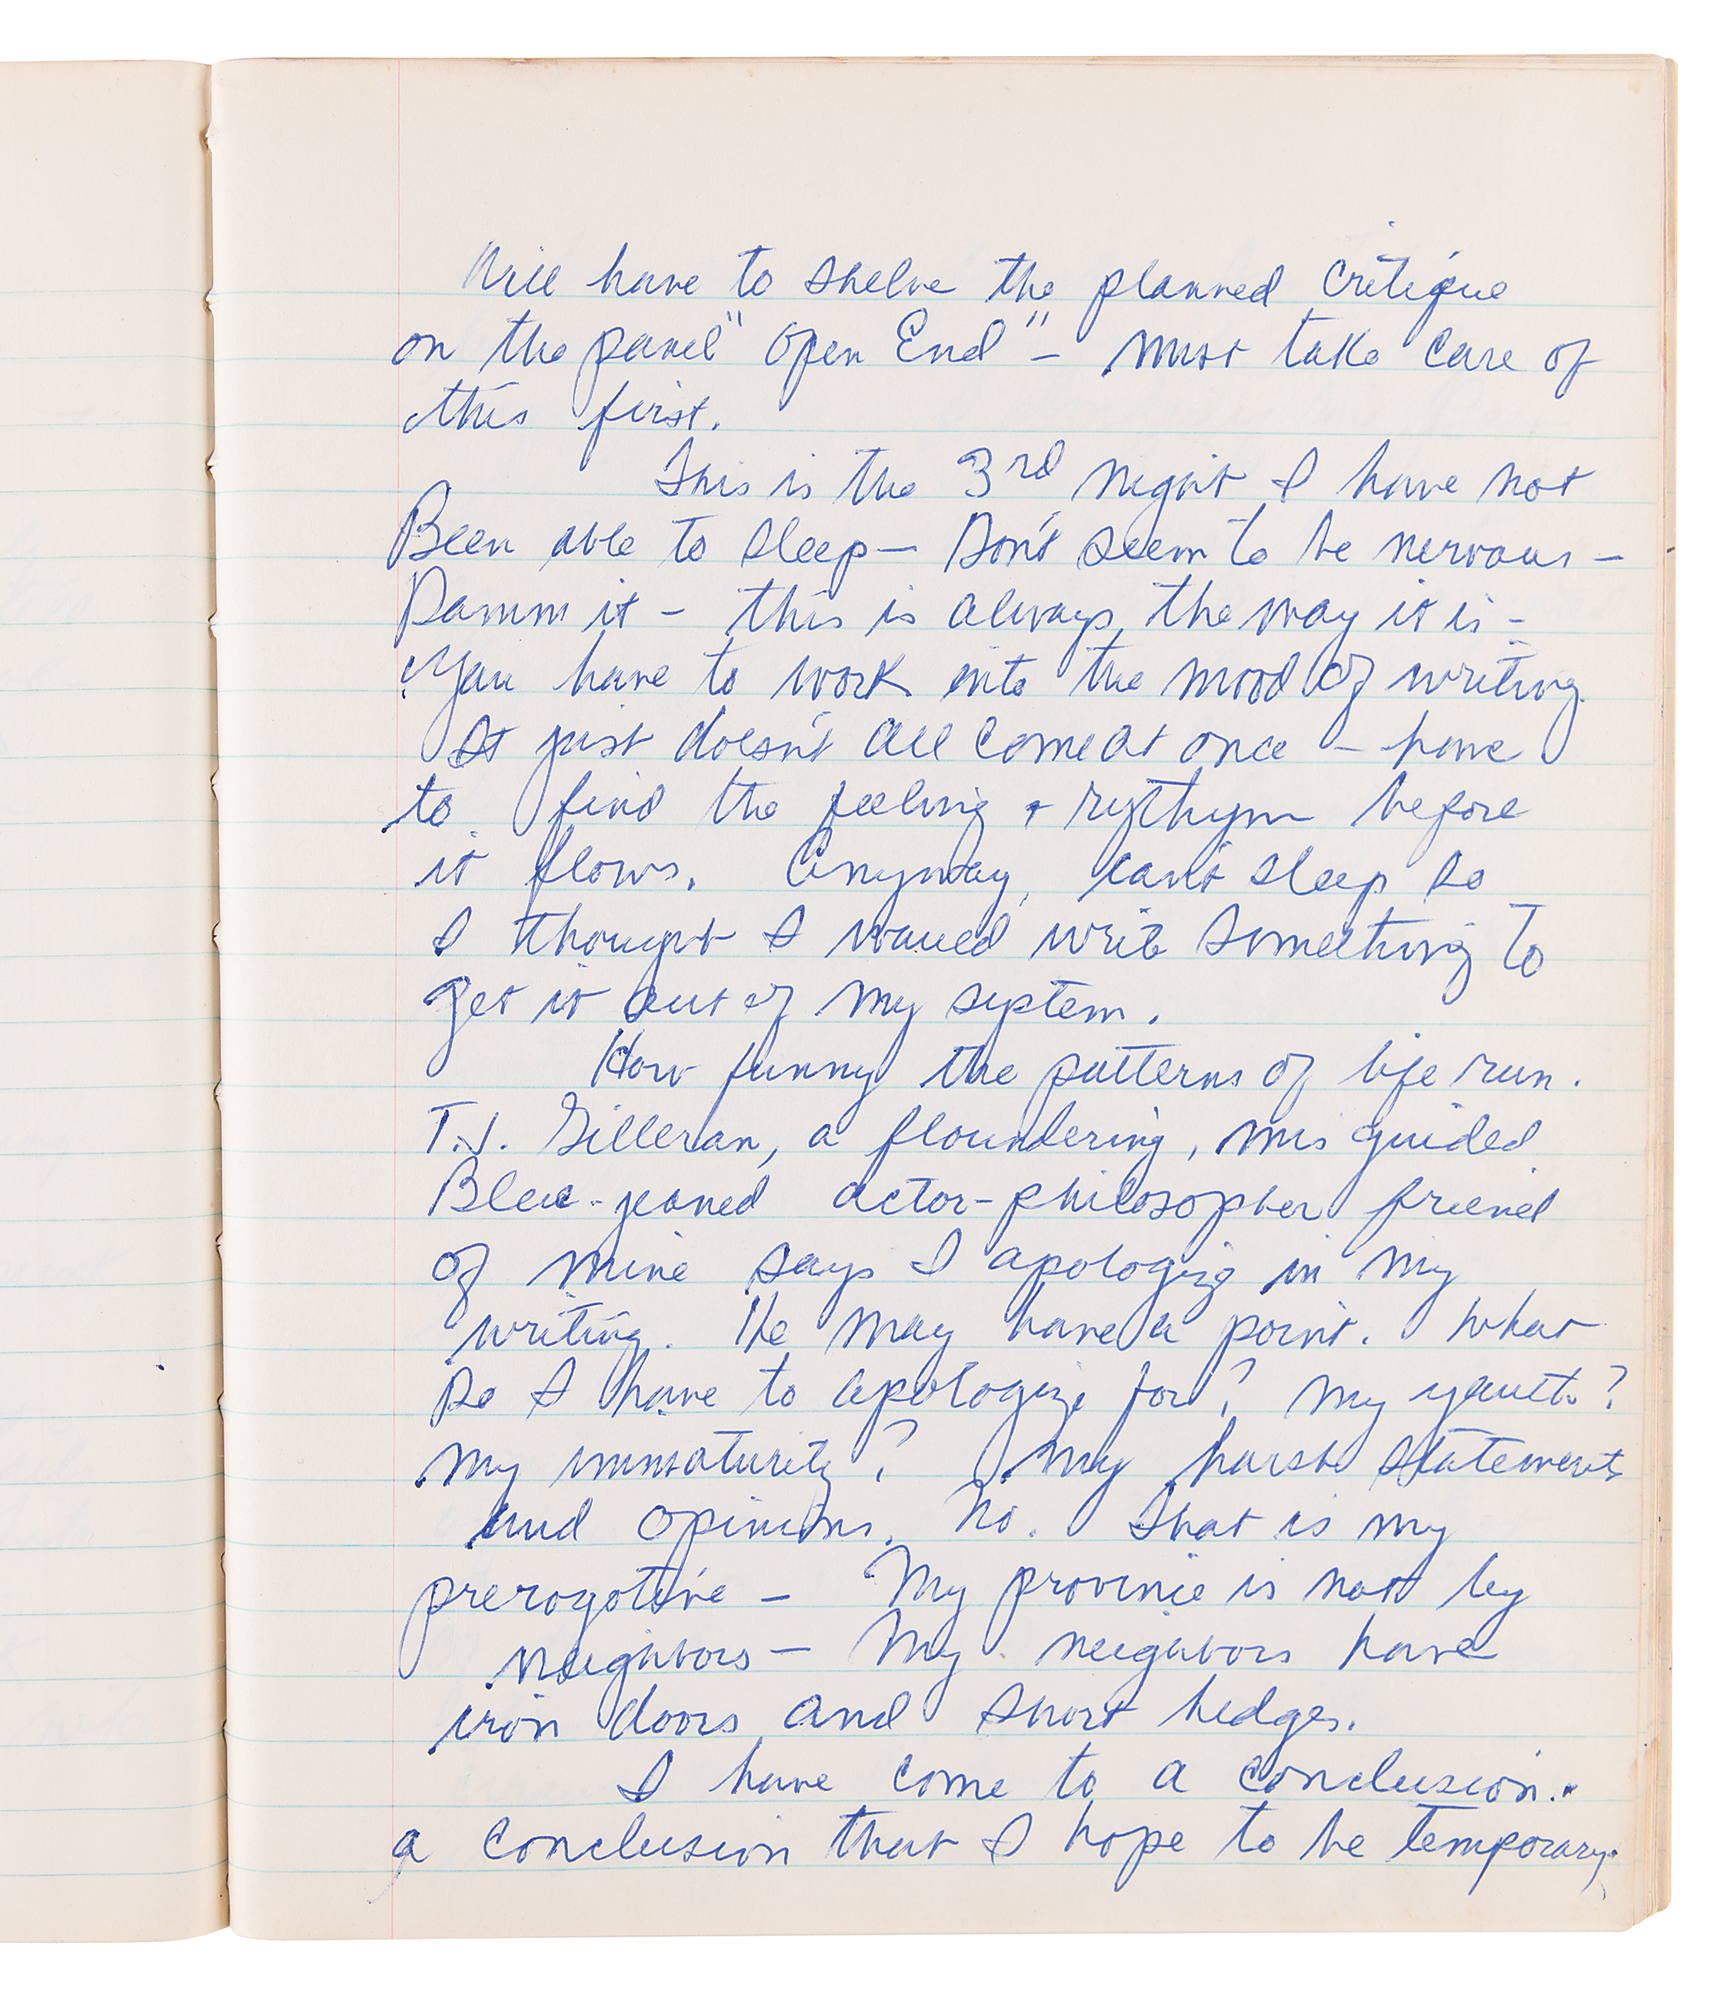 Will have to shelve the planned critique
on the panel "Open End" - must take care of
this first.
This is the 3rd night I have not
Been able to sleep - Don't seem to be nervous -
Damm it - this is always the way it is -
You have to work into the mood of writing.
It just doesn't all come at once - have
to find the feeling + rythym before
it flows. Anyway, can't sleep so
I thought I would write something to
get it out of my system.
How funny the patterns of life run.
T.J. Gilleran, a floundering, mis guided
Blue-jeaned actor-philosopher friend
of mine says I apologize in my
writing. He may have a point. What
Do I have to apologize for? My youth?
My immaturity? My harsh statements
and opinions. No. That is my
prerogotive - My province is not by
neighbors - My neighbors have
iron doors and short hedges.
I have come to a conclusion.
a conclusion that I hope to be temporary.